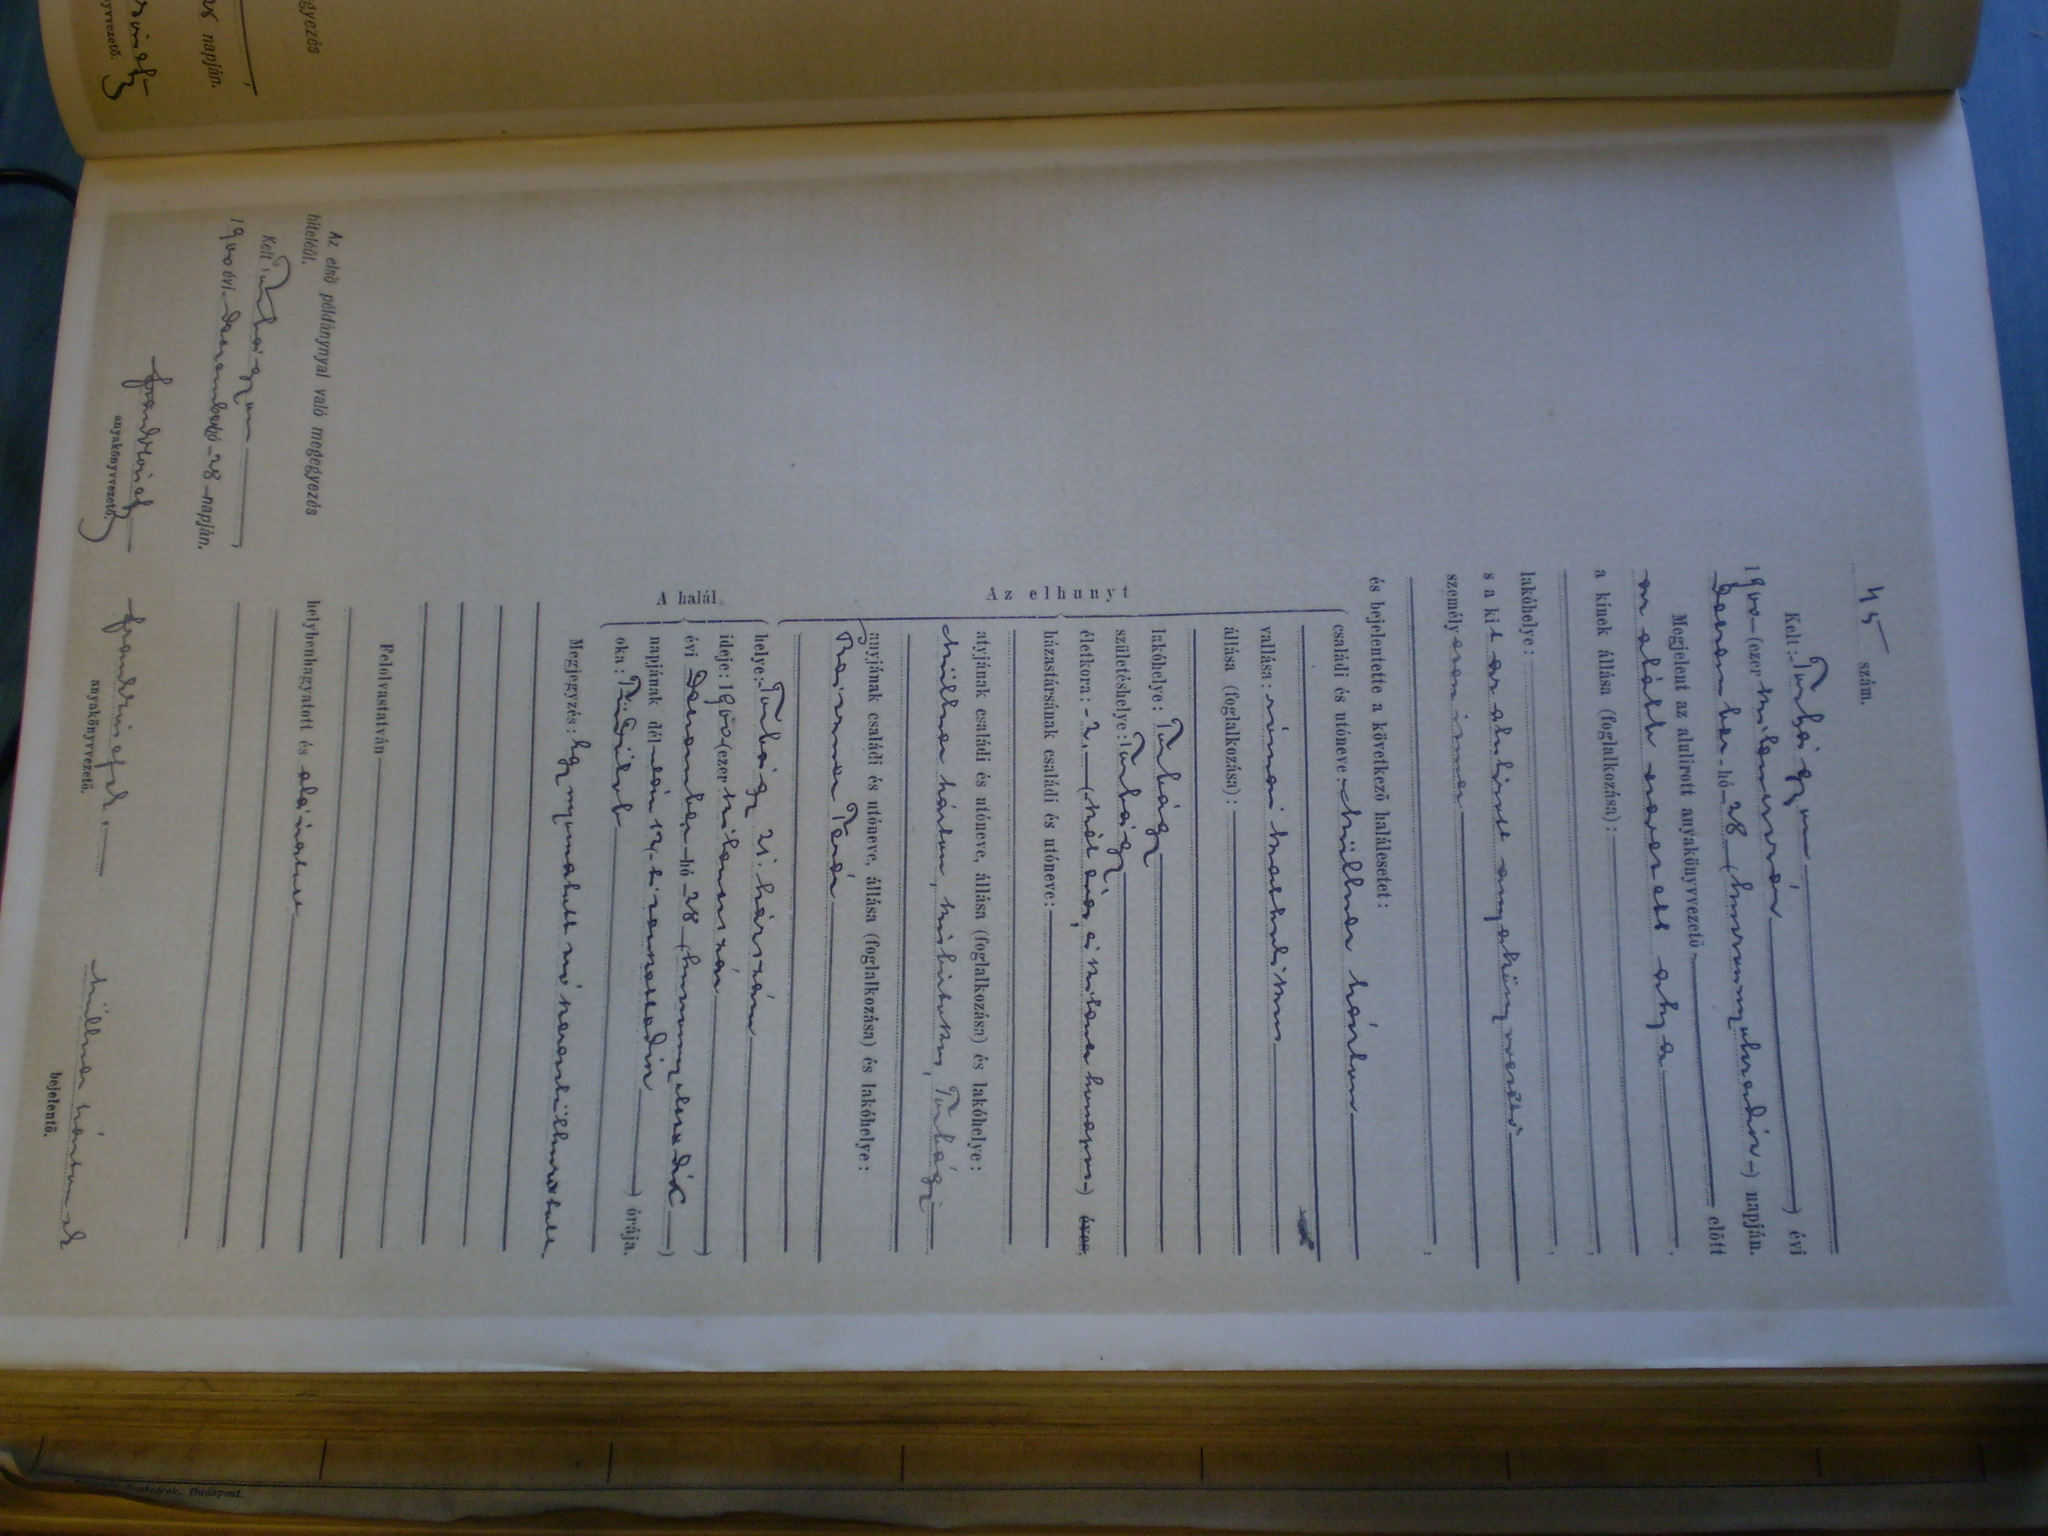 45 szám.
Kelt: Torbágyon
1900 (ezer kilencszáz) évi
december hó 28 (huszonnyolcadik) napján.
Megjelent az alulirott anyakönyvvezető előtt
az alább nevezett atya,
a kinek állása (foglalkozása):
lakóhelye:
s a kit az alulirott anyakönyvvezető
személyesen ismer
és bejelentette a következő halálesetet:
Az elhunyt
családi és utóneve: Müllner Márton
vallása: római katholikus
állása (foglalkozása):
lakóhelye: Torbágy
születéshelye: Torbágy
életkora: 2 (két és kilenc hónapos) éves,
házastársának családi és utóneve:
atyjának családi és utóneve, állása (foglalkozása) és lakóhelye:
Müllner Márton, Torbágy
anyjának családi és utóneve, állása (foglalkozása) és lakóhelye:
Teréz
A halál
helye: Torbágy 21. házszám
ideje: 1900 (ezer kilencszáz)
évi december hó 28 (huszonnyolcadik)
napjának dél óráján
oka:
Megjegyzés: Egy nyomtatott szó
Felolvastatván
helybenhagyatott és aláíratott
anyakönyvvezető.
Müllner Márton
bejelentő.
Az első példánynyal való megegyezés
hiteléül.
Kelt Torbágyon
1900 évi december hó 28 napján.
anyakönyvvezető.
egyezés
napján.
yvvezető.
Budapest.